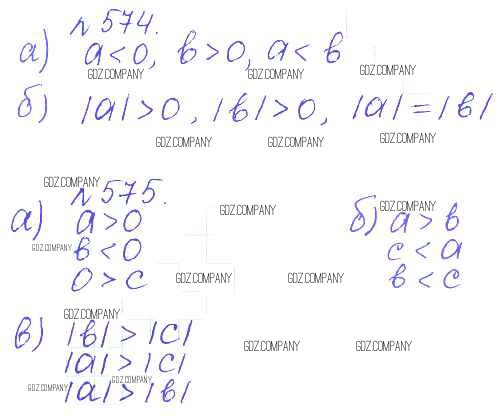 № 574.
а) a < 0, b > 0, a < b
GDZ.COMPANY GDZ.COMPANY GDZ.COMPANY
б) |a| > 0, |b| > 0, |a| = |b|
GDZ.COMPANY GDZ.COMPANY GDZ.COMPANY
GDZ.COMPANY № 575.
а) a > 0 GDZ.COMPANY б) a > b GDZ.COMPANY
GDZ.COMPANY b < 0 c < a
0 > c GDZ.COMPANY GDZ.COMPANY b < c
GDZ.COMPANY
в) |b| > |c| GDZ.COMPANY GDZ.COMPANY
|a| > |c|
GDZ.COMPANY |a| > |b| GDZ.COMPANY